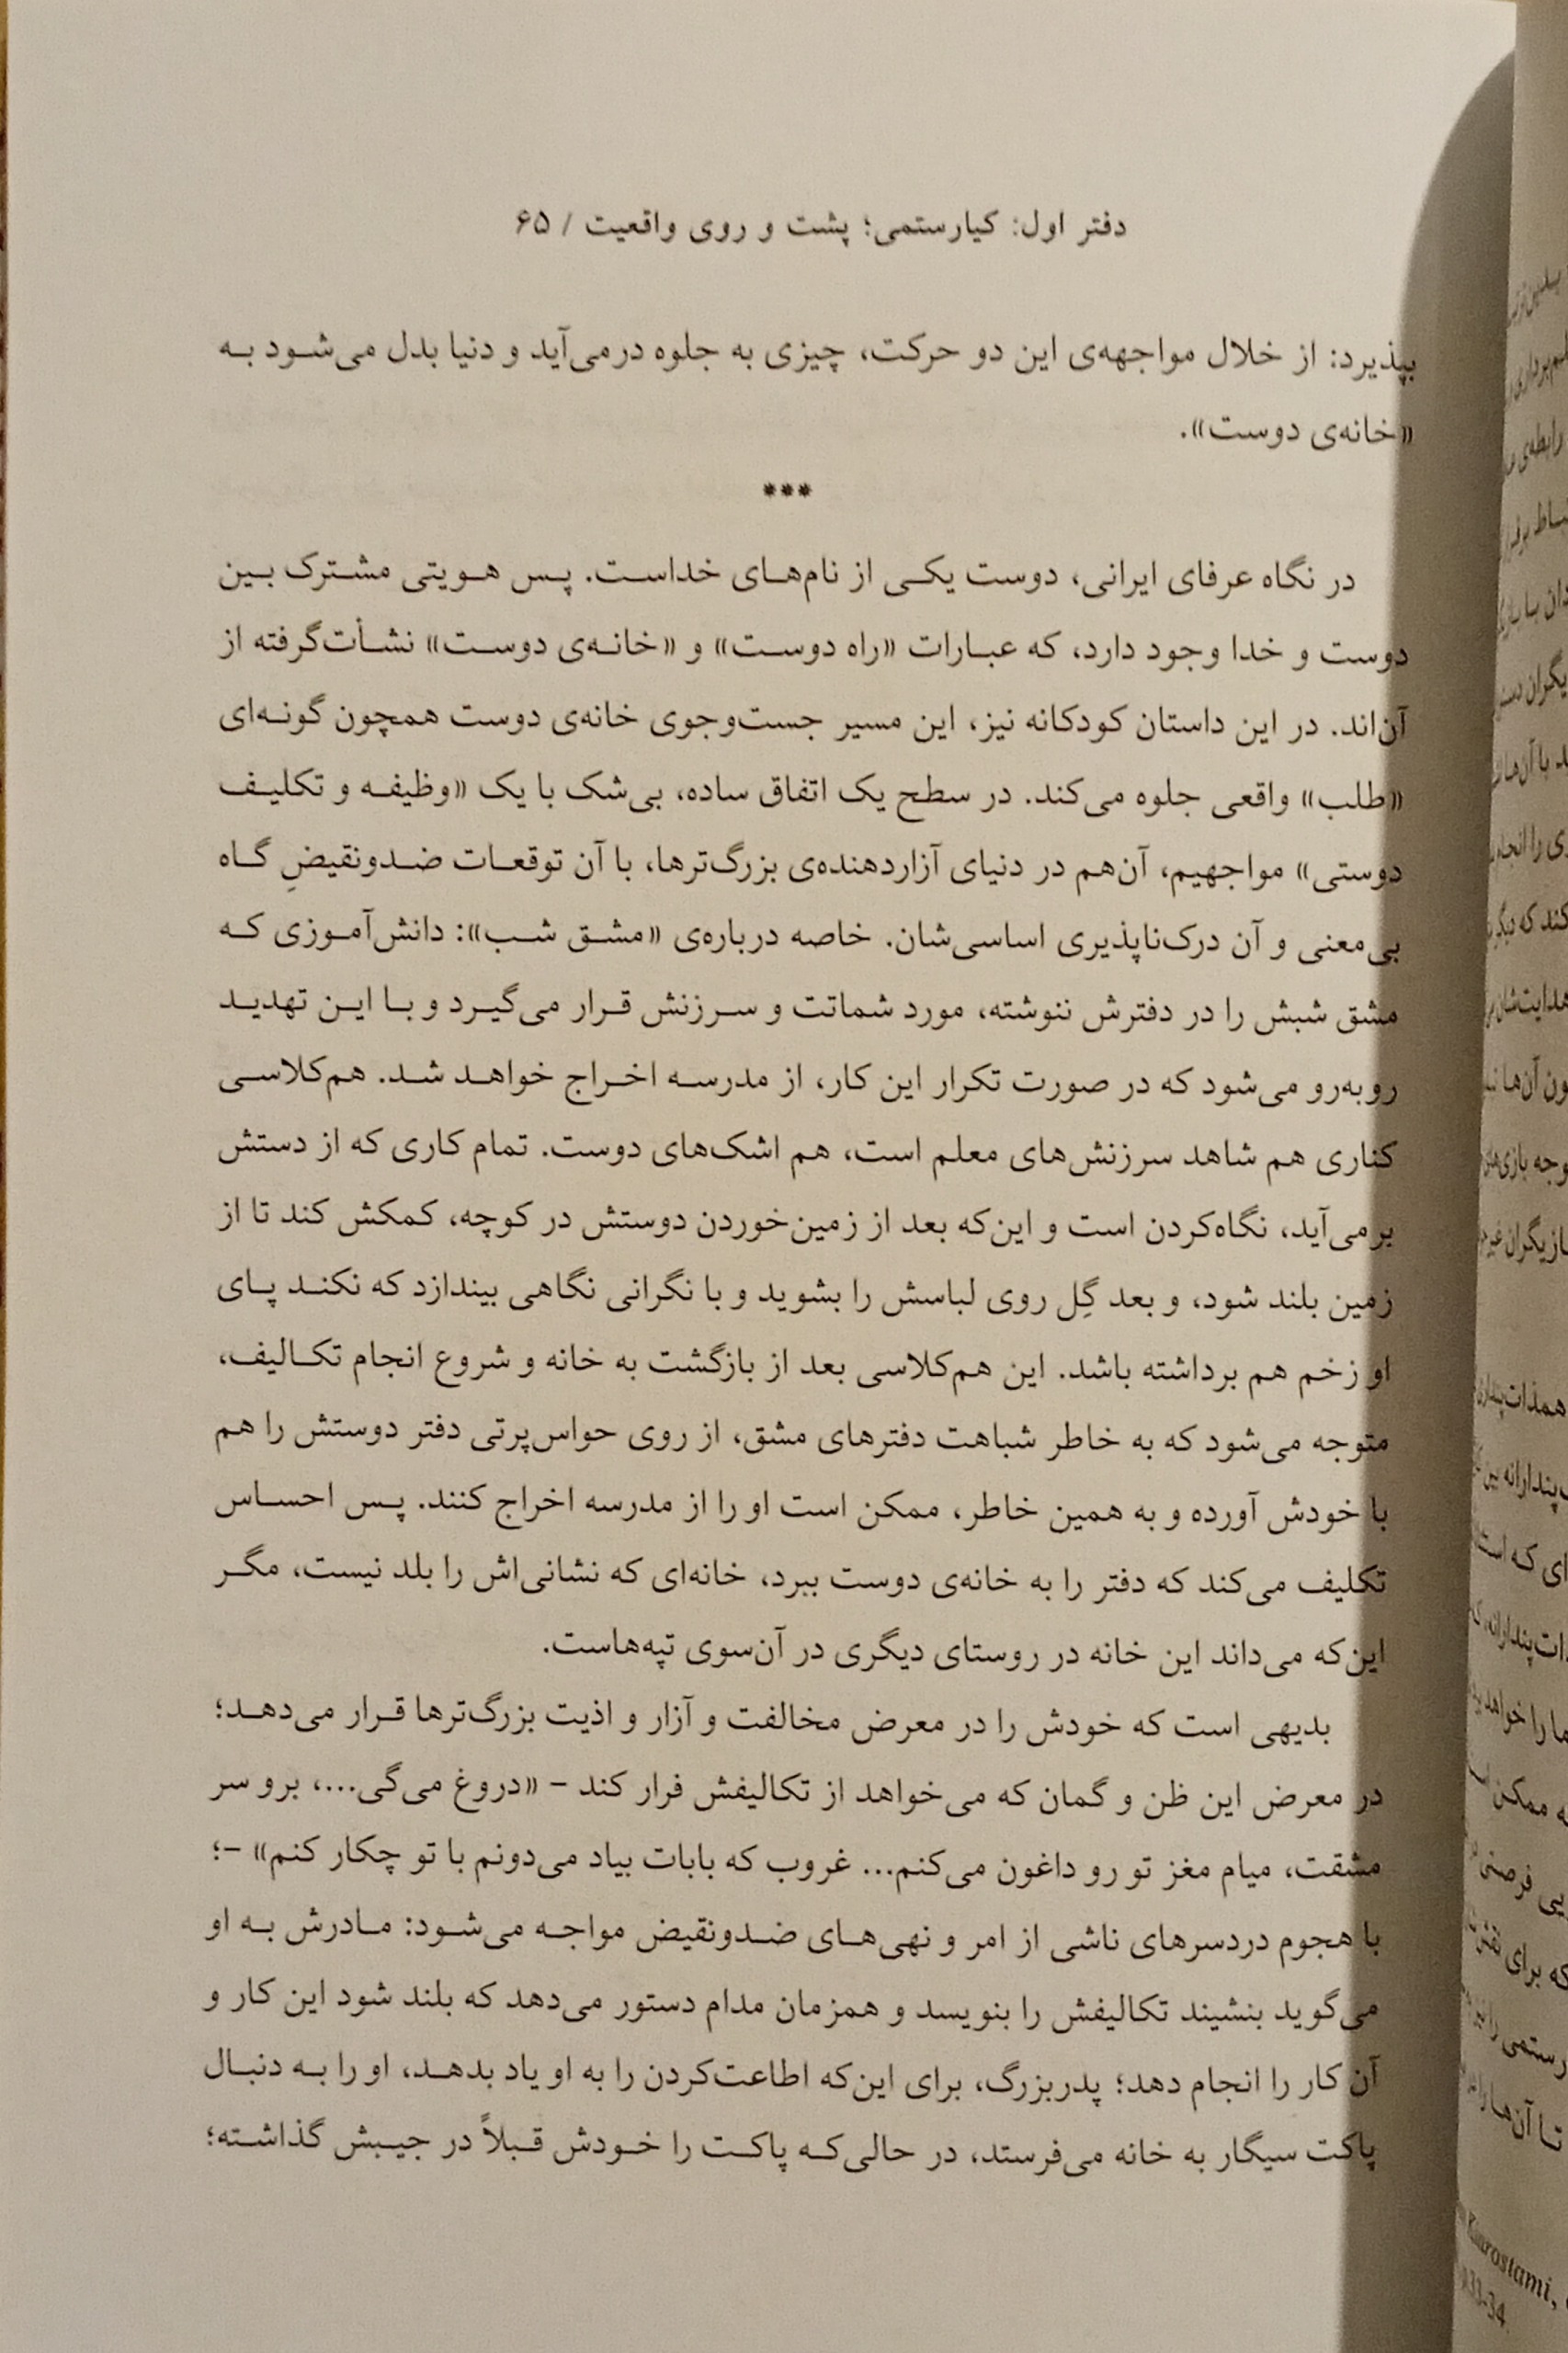 دفتر اول: کیارستمی؛ پشت و روی واقعیت / ۶۵
بپذیرد: از خلال مواجهه‌ی این دو حرکت، چیزی به جلوه درمی‌آید و دنیا بدل می‌شود به
«خانه‌ی دوست».
***
در نگاه عرفای ایرانی، دوست یکی از نام‌های خداست. پس هویتی مشترک بین
دوست و خدا وجود دارد، که عبارات «راه دوست» و «خانه‌ی دوست» نشأت‌گرفته از
آن‌اند. در این داستان کودکانه نیز، این مسیر جست‌وجوی خانه‌ی دوست همچون گونه‌ای
«طلب» واقعی جلوه می‌کند. در سطح یک اتفاق ساده، بی‌شک با یک «وظیفه و تکلیف
دوستی» مواجهیم، آن‌هم در دنیای آزاردهنده‌ی بزرگ‌ترها، با آن توقعات ضدونقیضِ گاه
بی‌معنی و آن درک‌ناپذیری اساسی‌شان. خاصه درباره‌ی «مشق شب»: دانش‌آموزی که
مشق شبش را در دفترش ننوشته، مورد شماتت و سرزنش قرار می‌گیرد و با این تهدید
روبه‌رو می‌شود که در صورت تکرار این کار، از مدرسه اخراج خواهد شد. هم‌کلاسی
کناری هم شاهد سرزنش‌های معلم است، هم اشک‌های دوست. تمام کاری که از دستش
برمی‌آید، نگاه‌کردن است و این‌که بعد از زمین‌خوردن دوستش در کوچه، کمکش کند تا از
زمین بلند شود، و بعد گِل روی لباسش را بشوید و با نگرانی نگاهی بیندازد که نکند پای
او زخم هم برداشته باشد. این هم‌کلاسی بعد از بازگشت به خانه و شروع انجام تکالیف،
متوجه می‌شود که به خاطر شباهت دفترهای مشق، از روی حواس‌پرتی دفتر دوستش را هم
با خودش آورده و به همین خاطر، ممکن است او را از مدرسه اخراج کنند. پس احساس
تکلیف می‌کند که دفتر را به خانه‌ی دوست ببرد، خانه‌ای که نشانی‌اش را بلد نیست، مگر
این‌که می‌داند این خانه در روستای دیگری در آن‌سوی تپه‌هاست.
بدیهی است که خودش را در معرض مخالفت و آزار و اذیت بزرگ‌ترها قرار می‌دهد؛
در معرض این ظن و گمان که می‌خواهد از تکالیفش فرار کند – «دروغ می‌گی...، برو سر
مشقت، میام مغز تو رو داغون می‌کنم... غروب که بابات بیاد می‌دونم با تو چکار کنم» –؛
با هجوم دردسرهای ناشی از امر و نهی‌های ضدونقیض مواجه می‌شود: مادرش به او
می‌گوید بنشیند تکالیفش را بنویسد و همزمان مدام دستور می‌دهد که بلند شود این کار و
آن کار را انجام دهد؛ پدربزرگ، برای این‌که اطاعت‌کردن را به او یاد بدهد، او را به دنبال
پاکت سیگار به خانه می‌فرستد، در حالی‌که پاکت را خودش قبلاً در جیبش گذاشته؛